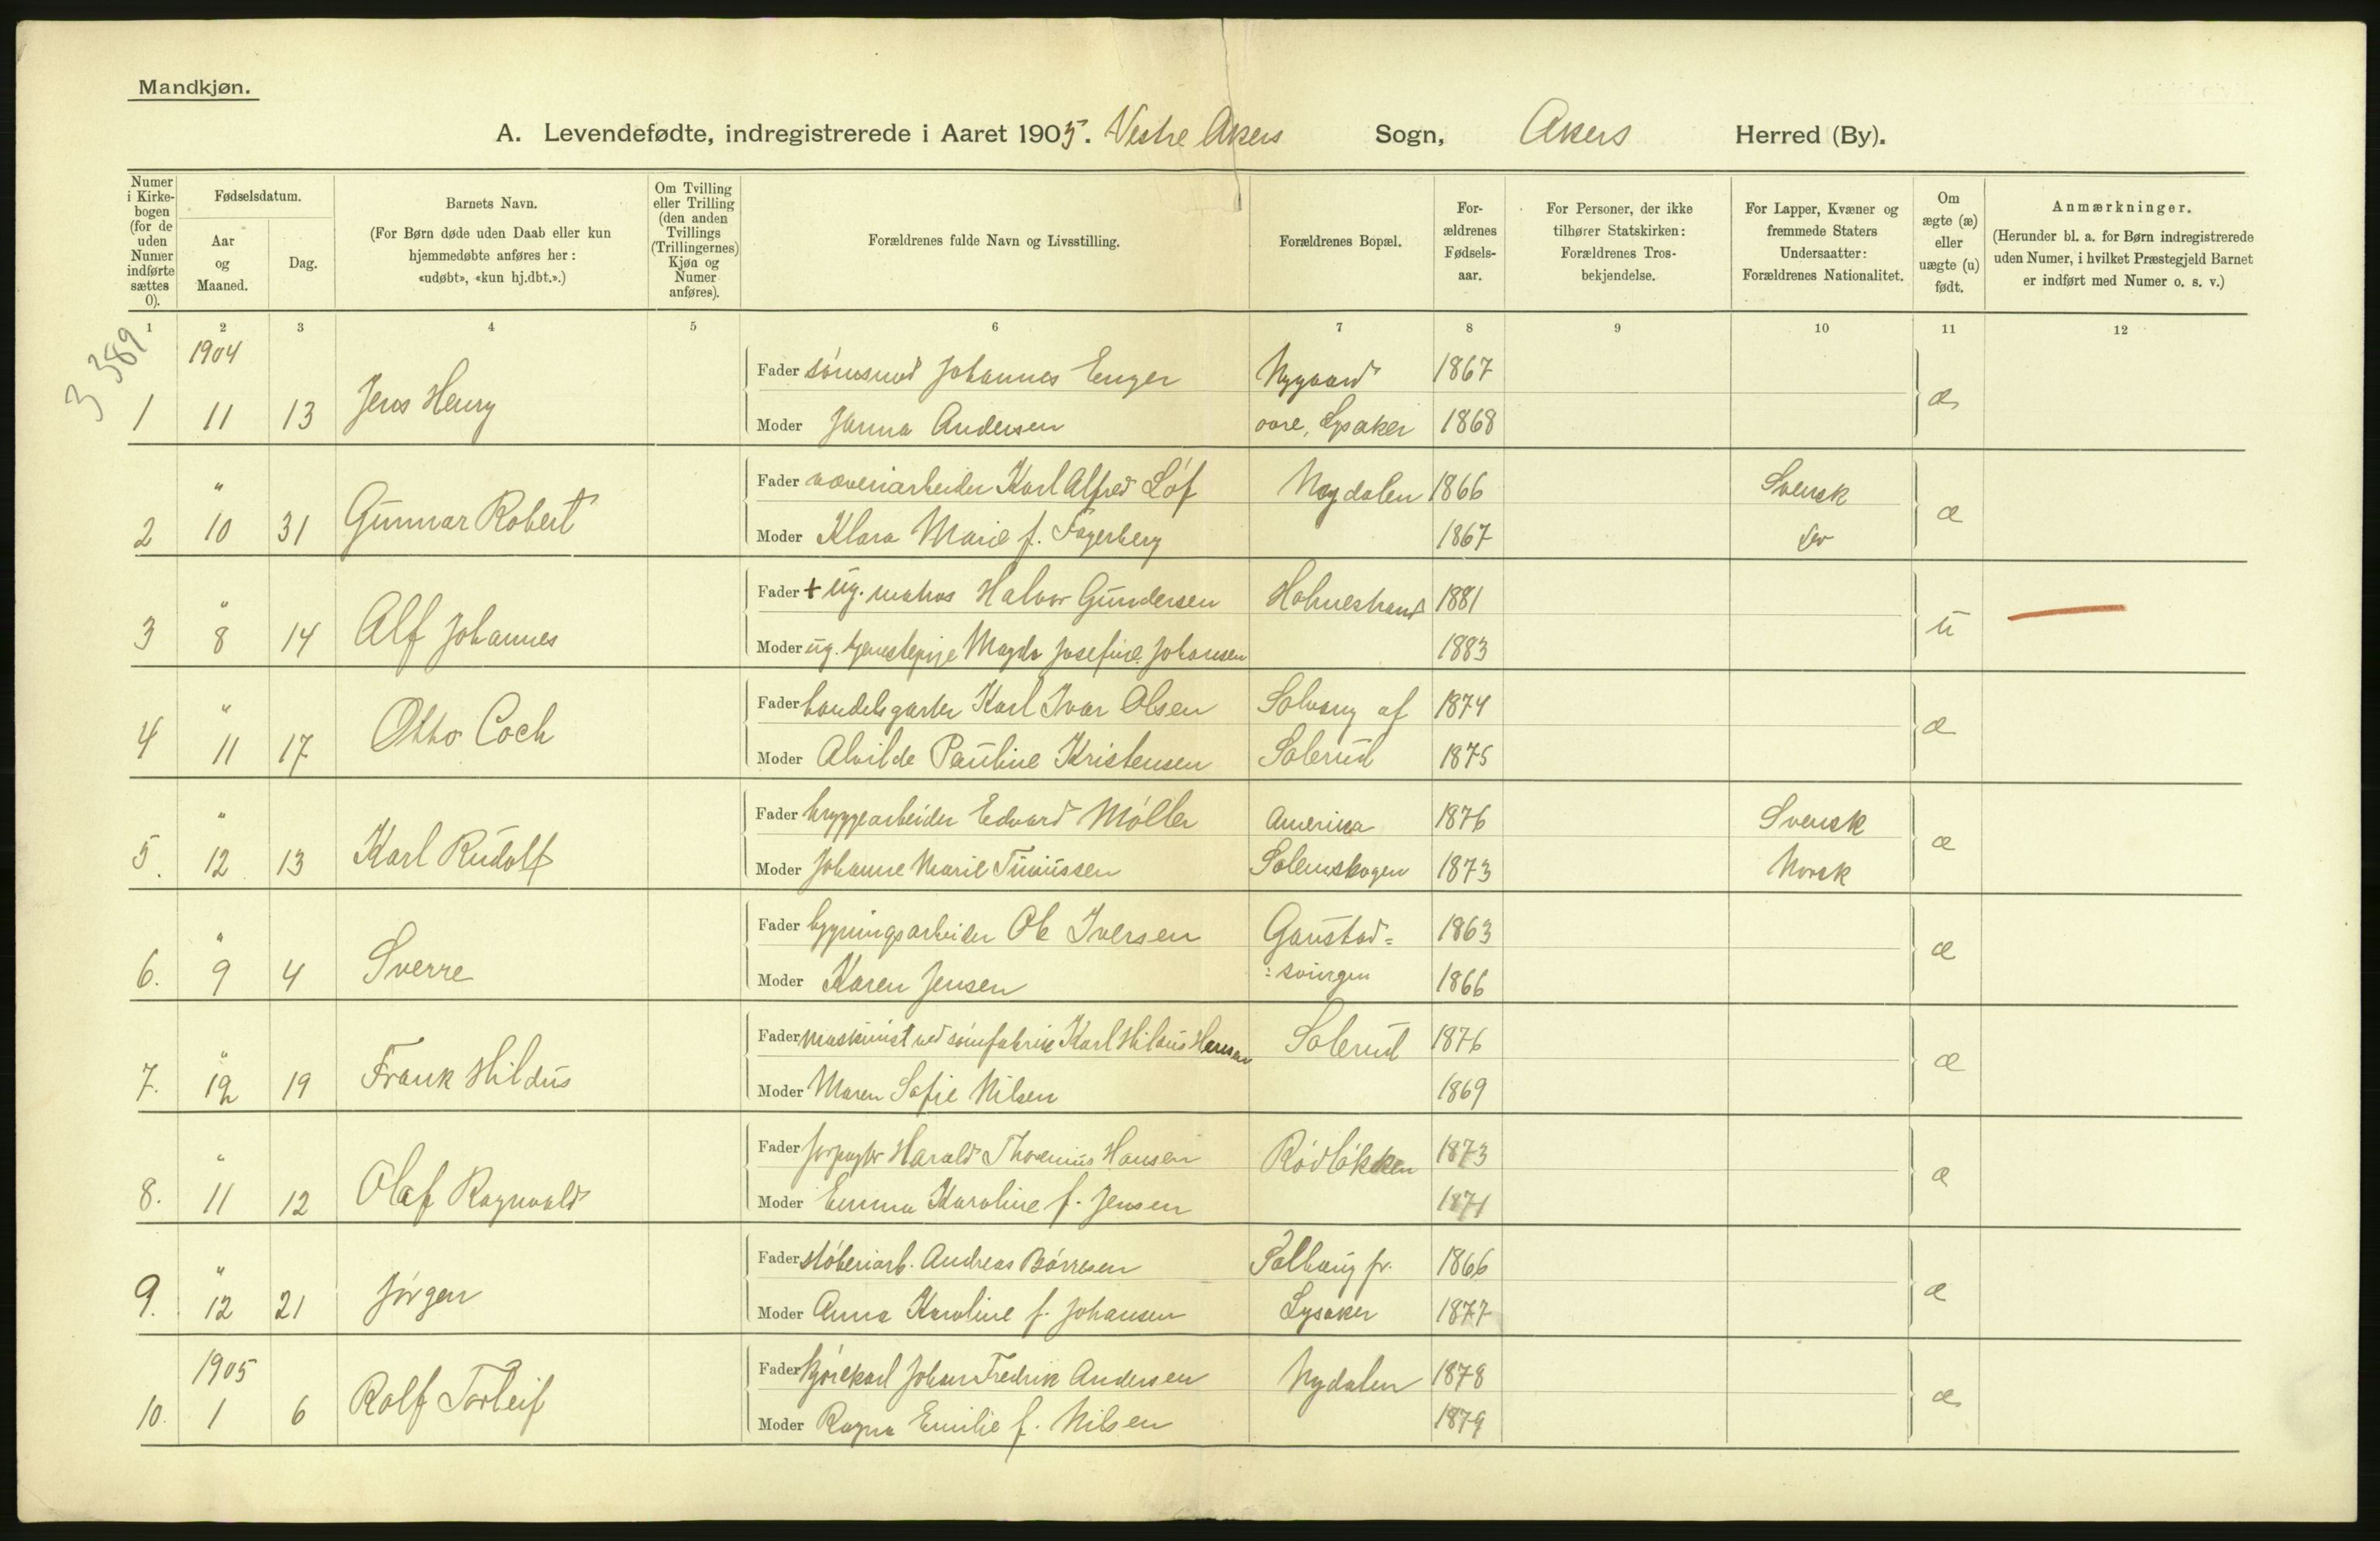 Mandkjøn.
A. Levendefødte, indregistrerede i Aaret 1905. Vestre Akers Sogn, Akers Herred (By).
Numer i Kirkebogen (for de uden Numer indførte sættes 0).
Fødselsdatum.
Aar og Maaned.
Dag.
Barnets Navn.
(For Børn døde uden Daab eller kun hjemmedøbte anføres her: «udøbt», «kun hj.dbt.».)
Om Tvilling eller Trilling (den anden Tvillings (Trillingernes) Kjøn og Numer anføres).
Forældrenes fulde Navn og Livsstilling.
Forældrenes Bopæl.
Forældrenes Fødselsaar.
For Personer, der ikke tilhører Statskirken: Forældrenes Trosbekjendelse.
For Lapper, Kvæner og fremmede Staters Undersaatter: Forældrenes Nationalitet.
Om ægte (æ) eller uægte (u) født.
Anmærkninger.
(Herunder bl. a. for Børn indregistrerede uden Numer, i hvilket Præstegjeld Barnet er indført med Numer o. s. v.)
1 2 3 4 5 6 7 8 9 10 11 12
3389
1904
Fader sömsmed Johannes Enger Nygaard 1867
1 11 13 Jens Henry æ
Moder Janna Andersen Lysaker 1868
" Fader væveriarbeider Karl Alfred Löf Nydalen 1866 Svensk
2 10 31 Gunnar Robert æ
Moder Klara Marie f. Fagerberg 1867 do
" Fader + ug. matros Halvor Gundersen Holmestrand 1881
3 8 14 Alf Johannes u
Moder ug. tjenestepige Magda Josefine Johansen 1883
" Fader handelsgartner Karl Ivar Olsen Solvang af 1874
4 11 17 Otto Coch æ
Moder Alvilde Pauline Kristensen Solerud 1875
" Fader bryggearbeider Edvard Möller Amerika 1876 Svensk
5. 12 13 Karl Rudolf æ
Moder Johanne Marie Solemskogen 1873 Norsk
" Fader bygningsarbeider Ole Iversen Gaustad= 1863
6. 9 4 Sverre æ
Moder Karen Jensen =svingen 1866
" Fader maskinist ved sömfabrik Karl Hildus Hansen Solerud 1876
7. 12 19 Frank Hildus æ
Moder Maren Sofie Nilsen 1869
" Fader forpagter Harald Thorenius Hansen Rödlökken 1873
8. 11 12 Olaf Ragnvald æ
Moder Emma Karoline f. Jensen 1871
" Fader støberiarb. Andreas Börresen Solhaug pr. 1866
9. 12 21 Jörgen æ
Moder Anna Karoline f. Johansen Lysaker 1877
1905 Fader kjörekarl Johan Fredrik Andersen Nydalen 1878
10. 1 6 Rolf Torleif æ
Moder Ragna Emilie f. Nilsen 1879